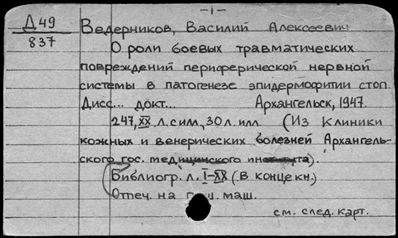 -1-
Д 49
837
Ведерников, Василий Алексеевич
О роли боевых травматических
повреждений периферической нервной
системы в патогенезе эпидермофитии стоп
Дисс... докт... Архангельск, 1947.
247, XX л. с илл, 30 л. илл (Из клиники
кожных и венерических болезней Архангель-
ского гос. медицинского института).
Библиогр. л. I-XX (в конце кн.)
Отпеч. на маш.
см. след. карт.